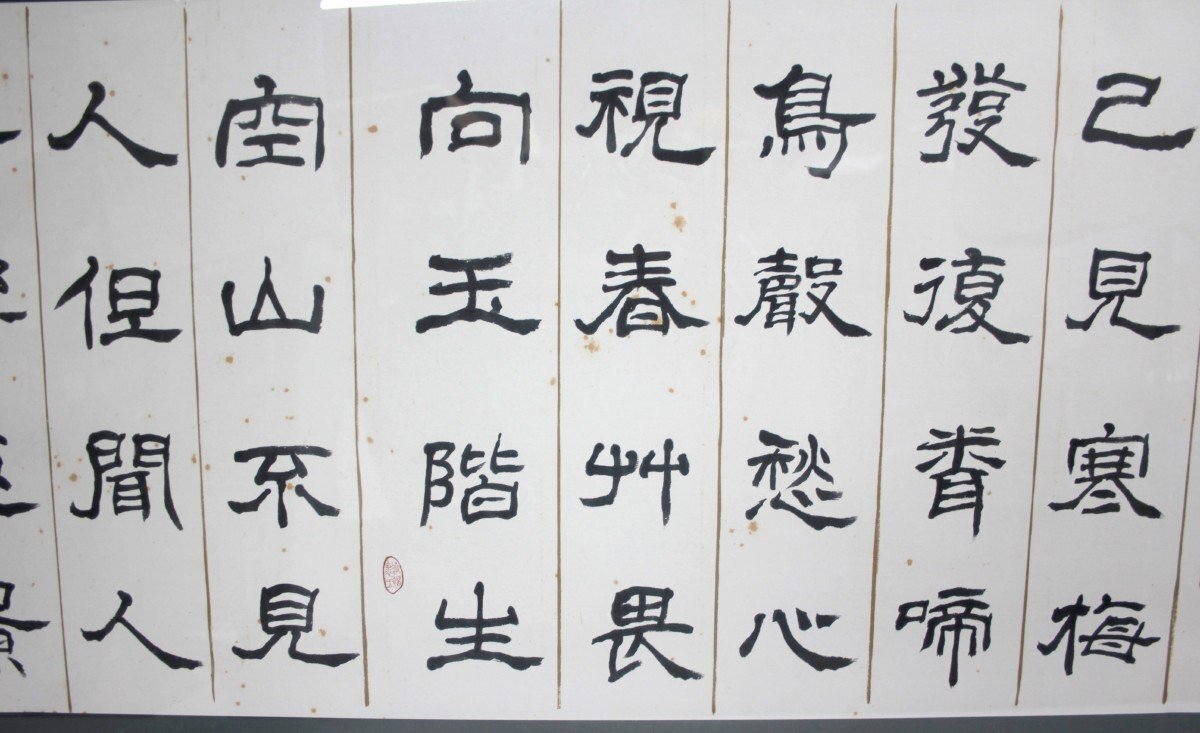 已見寒梅
發復聞啼
鳥聲愁心
視春艸畏
向玉階生
空山不見
人但聞人